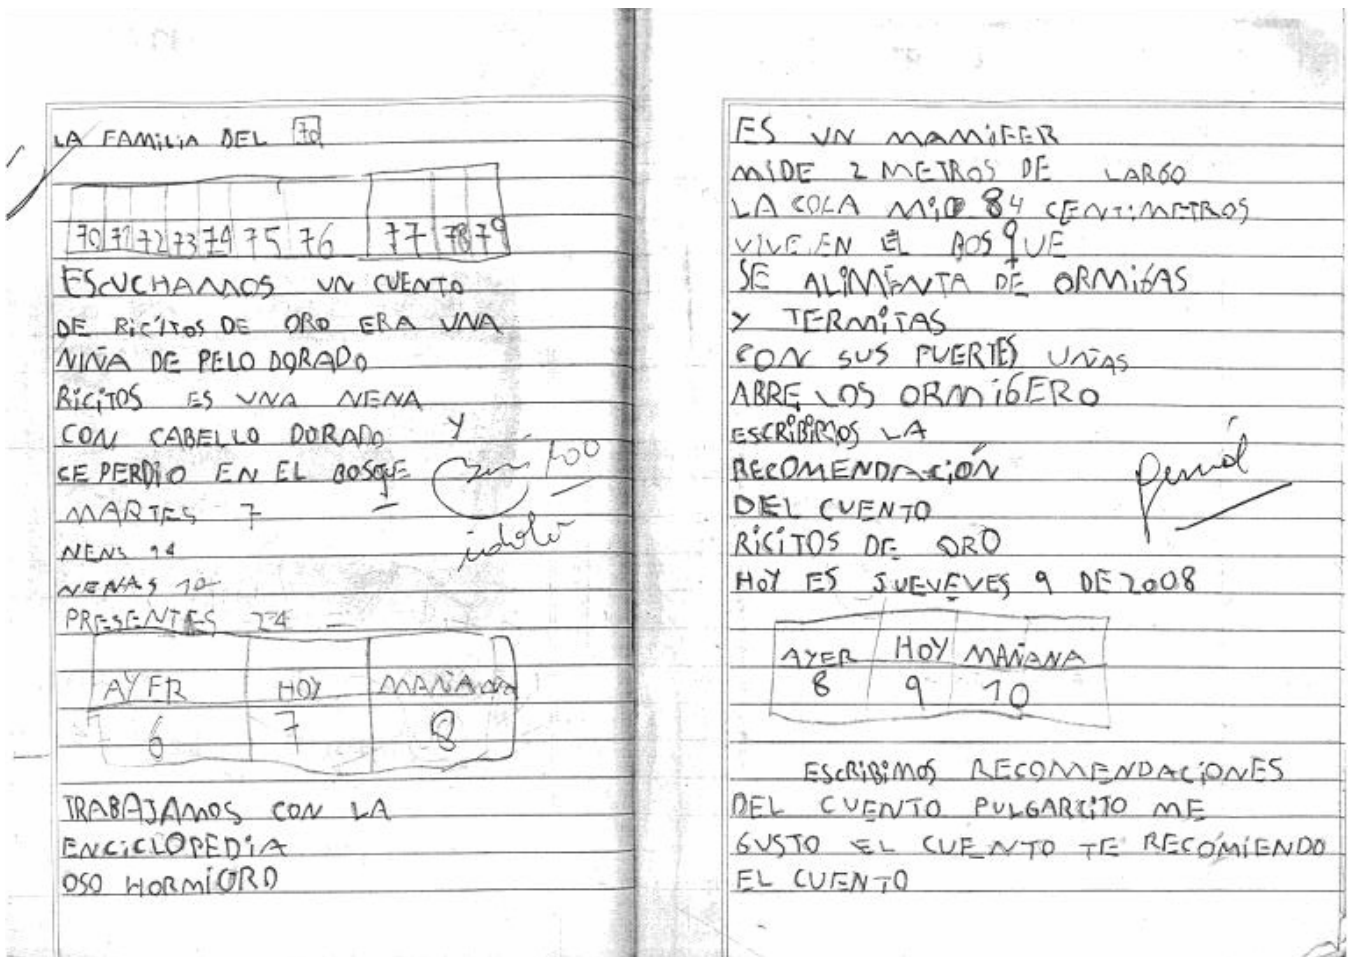 LA FAMILIA DEL 70
70 71 72 73 74 75 76 77 78 79
ESCUCHAMOS UN CUENTO
DE RICITOS DE ORO ERA UNA
NIÑA DE PELO DORADO
RICITOS ES UNA NENA
CON CABELLO DORADO Y
CE PERDIO EN EL BOSQE
MARTES 7
NENS 14
NENAS 10
PRESENTES 24
AYER HOY MAÑANA
6 7 8
TRABAJAMOS CON LA
ENCICLOPEDIA
OSO HORMIGRO
ES UN MAMIFER
MIDE 2 METROS DE LARGO
LA COLA MID 84 CENTIMETROS
VIVE EN EL BOSQUE
SE ALIMENTA DE ORMIGAS
Y TERMITAS
CON SUS FUERTES UÑAS
ABRE LOS ORMIGERO
ESCRIBIMOS LA
RECOMENDACIÓN
DEL CUENTO
RICITOS DE ORO
HOY ES JUEVEVES 9 DE 2008
AYER HOY MAÑANA
8 9 10
ESCRIBIMOS RECOMENDACIONES
DEL CUENTO PULGARCITO ME
GUSTO EL CUENTO TE RECOMIENDO
EL CUENTO